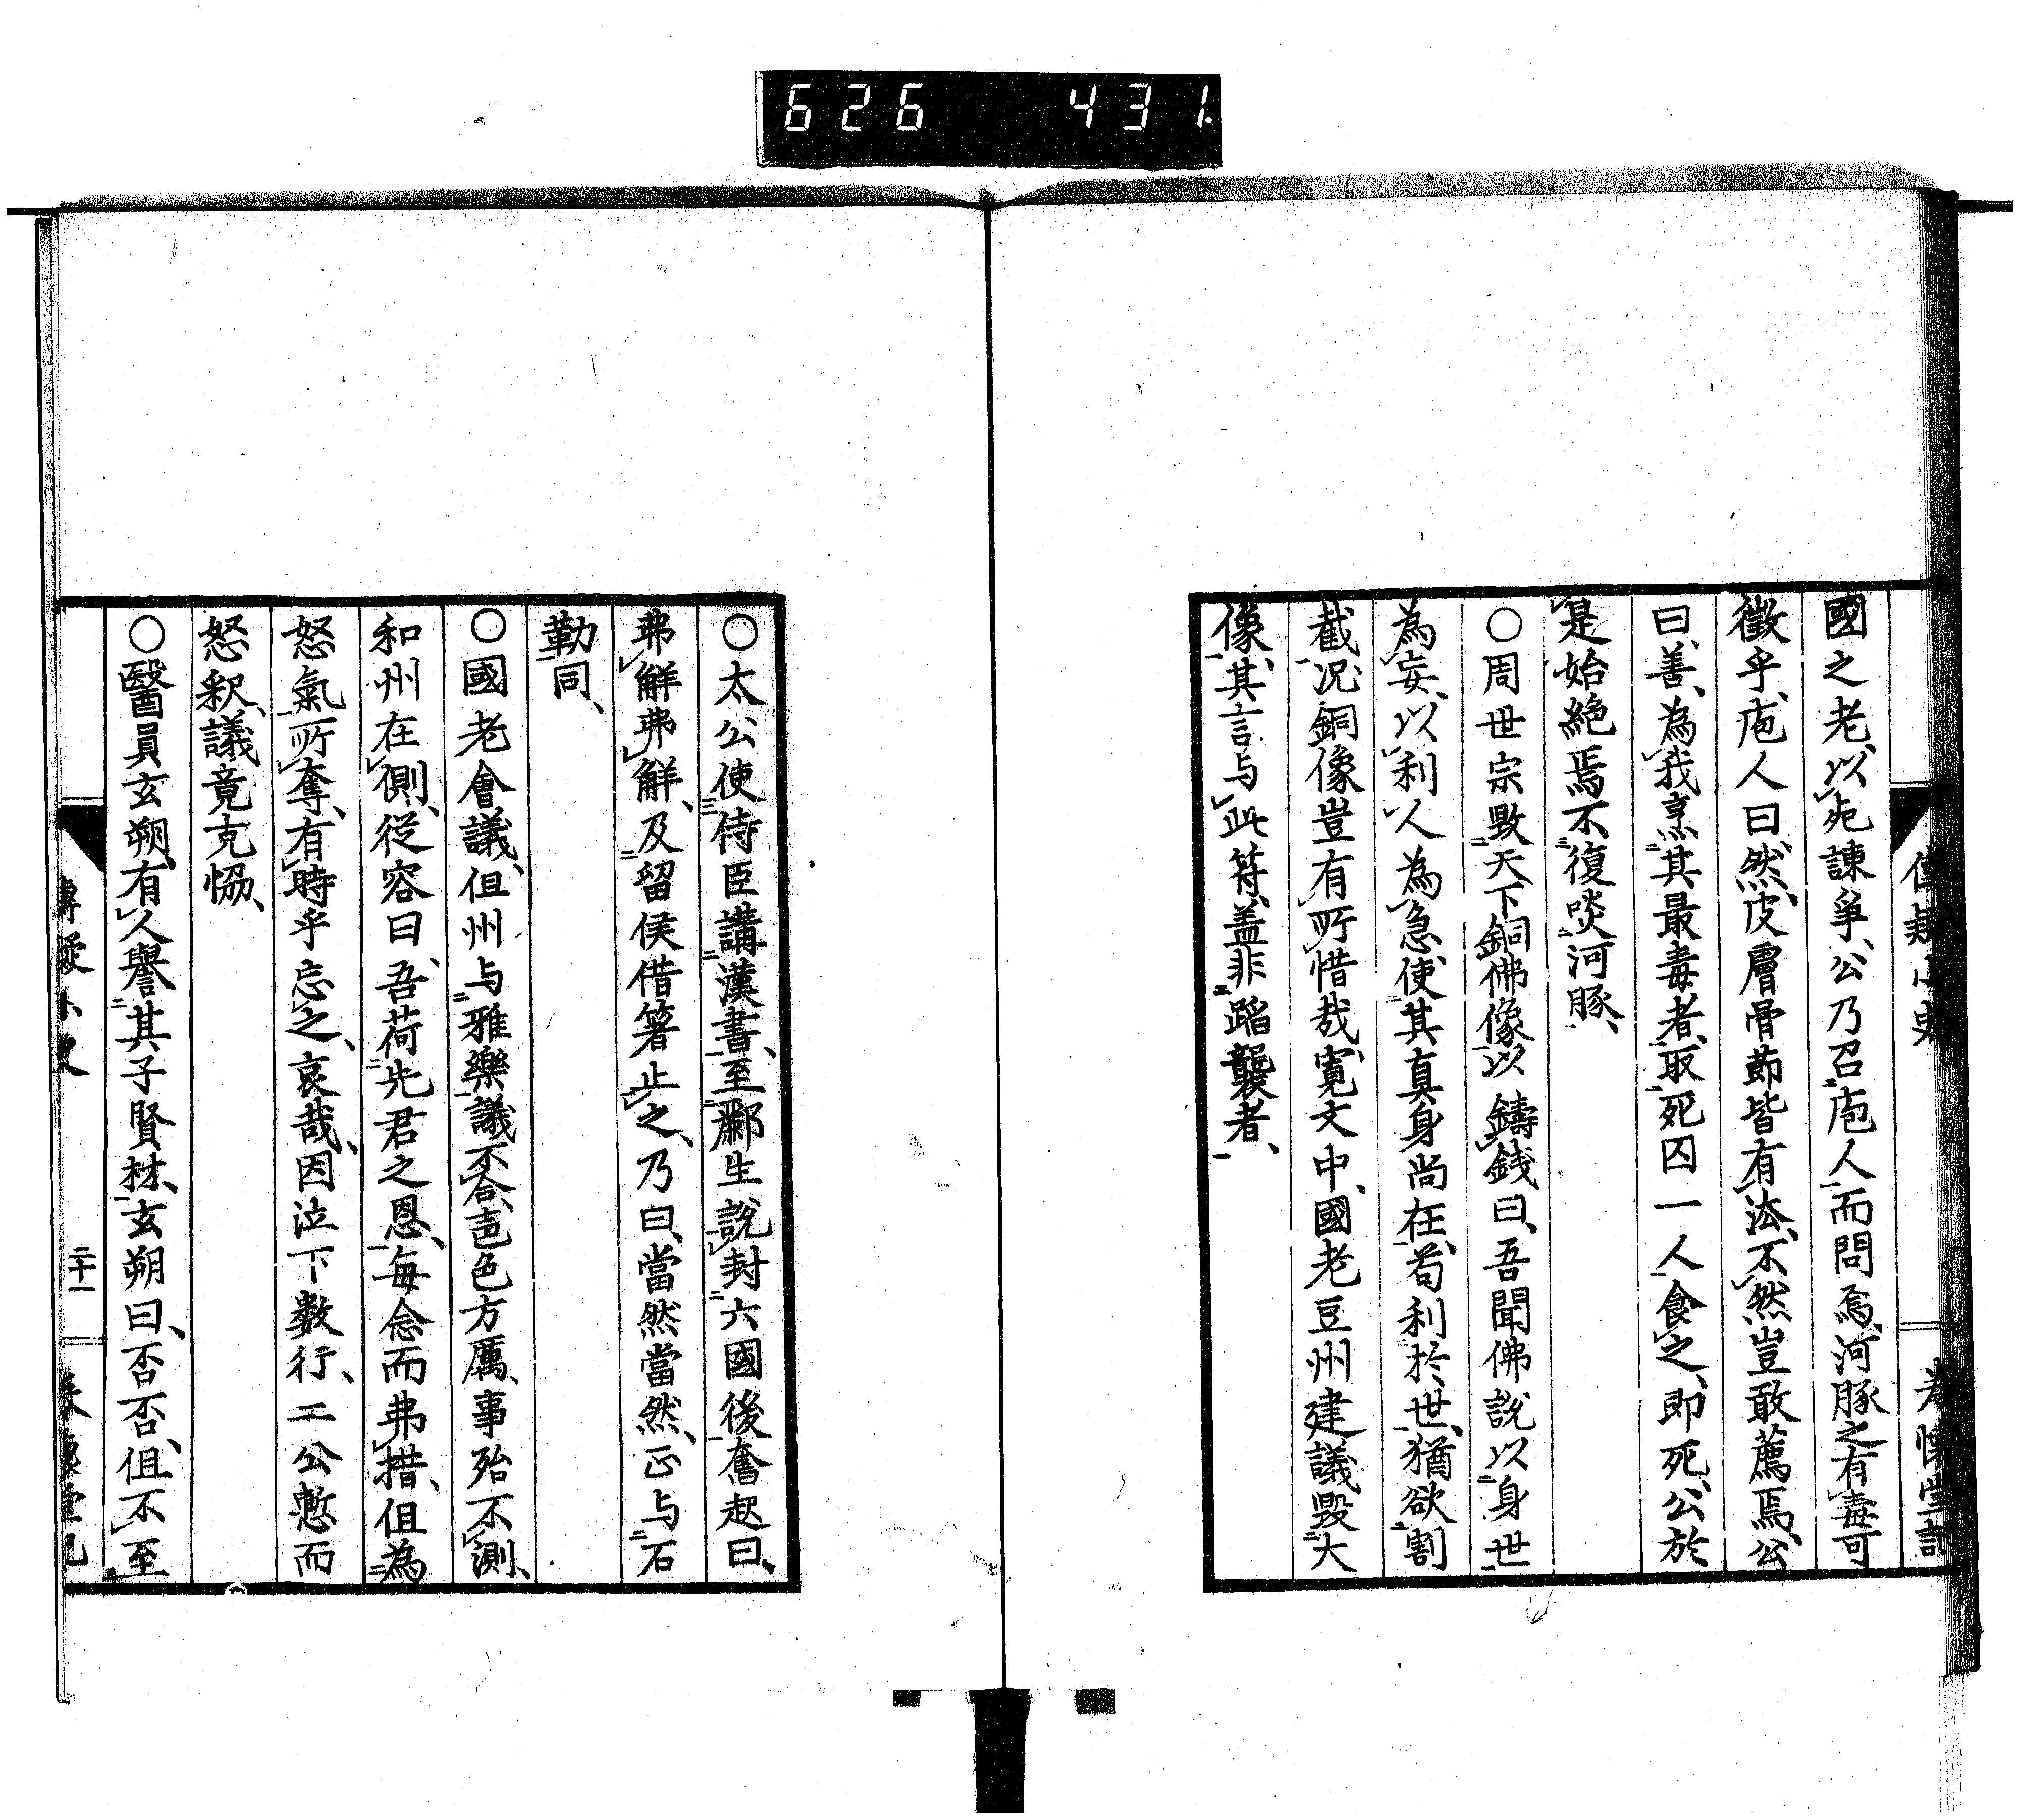 626 431
國之老、以死諫爭、公乃召庖人而問焉、河豚之有毒可
徵乎、庖人曰、然、皮膚骨節皆有法、不然豈敢薦焉、公
曰、善、為我烹其最毒者、取死囚一人食之、即死、公於
是始絶焉不復啖河豚、
○周世宗毀天下銅佛像以鑄銭曰、吾聞佛説以身世
為妄、以利人為急、使其真身尚在、苟利於世、猶欲割
截、况銅像豈有所惜哉、寛文中、國老豆州建議毀大
像、其言与此符、盖非蹈襲者、
○太公使侍臣講漢書、至酈生説封六國後、奮起曰、
弗解弗解、及留侯借箸止之、乃曰、當然當然、正与石
勒同、
○國老會議、伹州与雅樂議不合、声色方厲、事殆不測、
和州在側、従容曰、吾荷先君之恩、毎念而弗措、伹為
怒氣所奪、有時乎忘之、哀哉、因泣下数行、二公慙而
怒釈、議竟克恊、
○醫員玄朔、有人譽其子賢材、玄朔曰、否否、伹不至
二十一